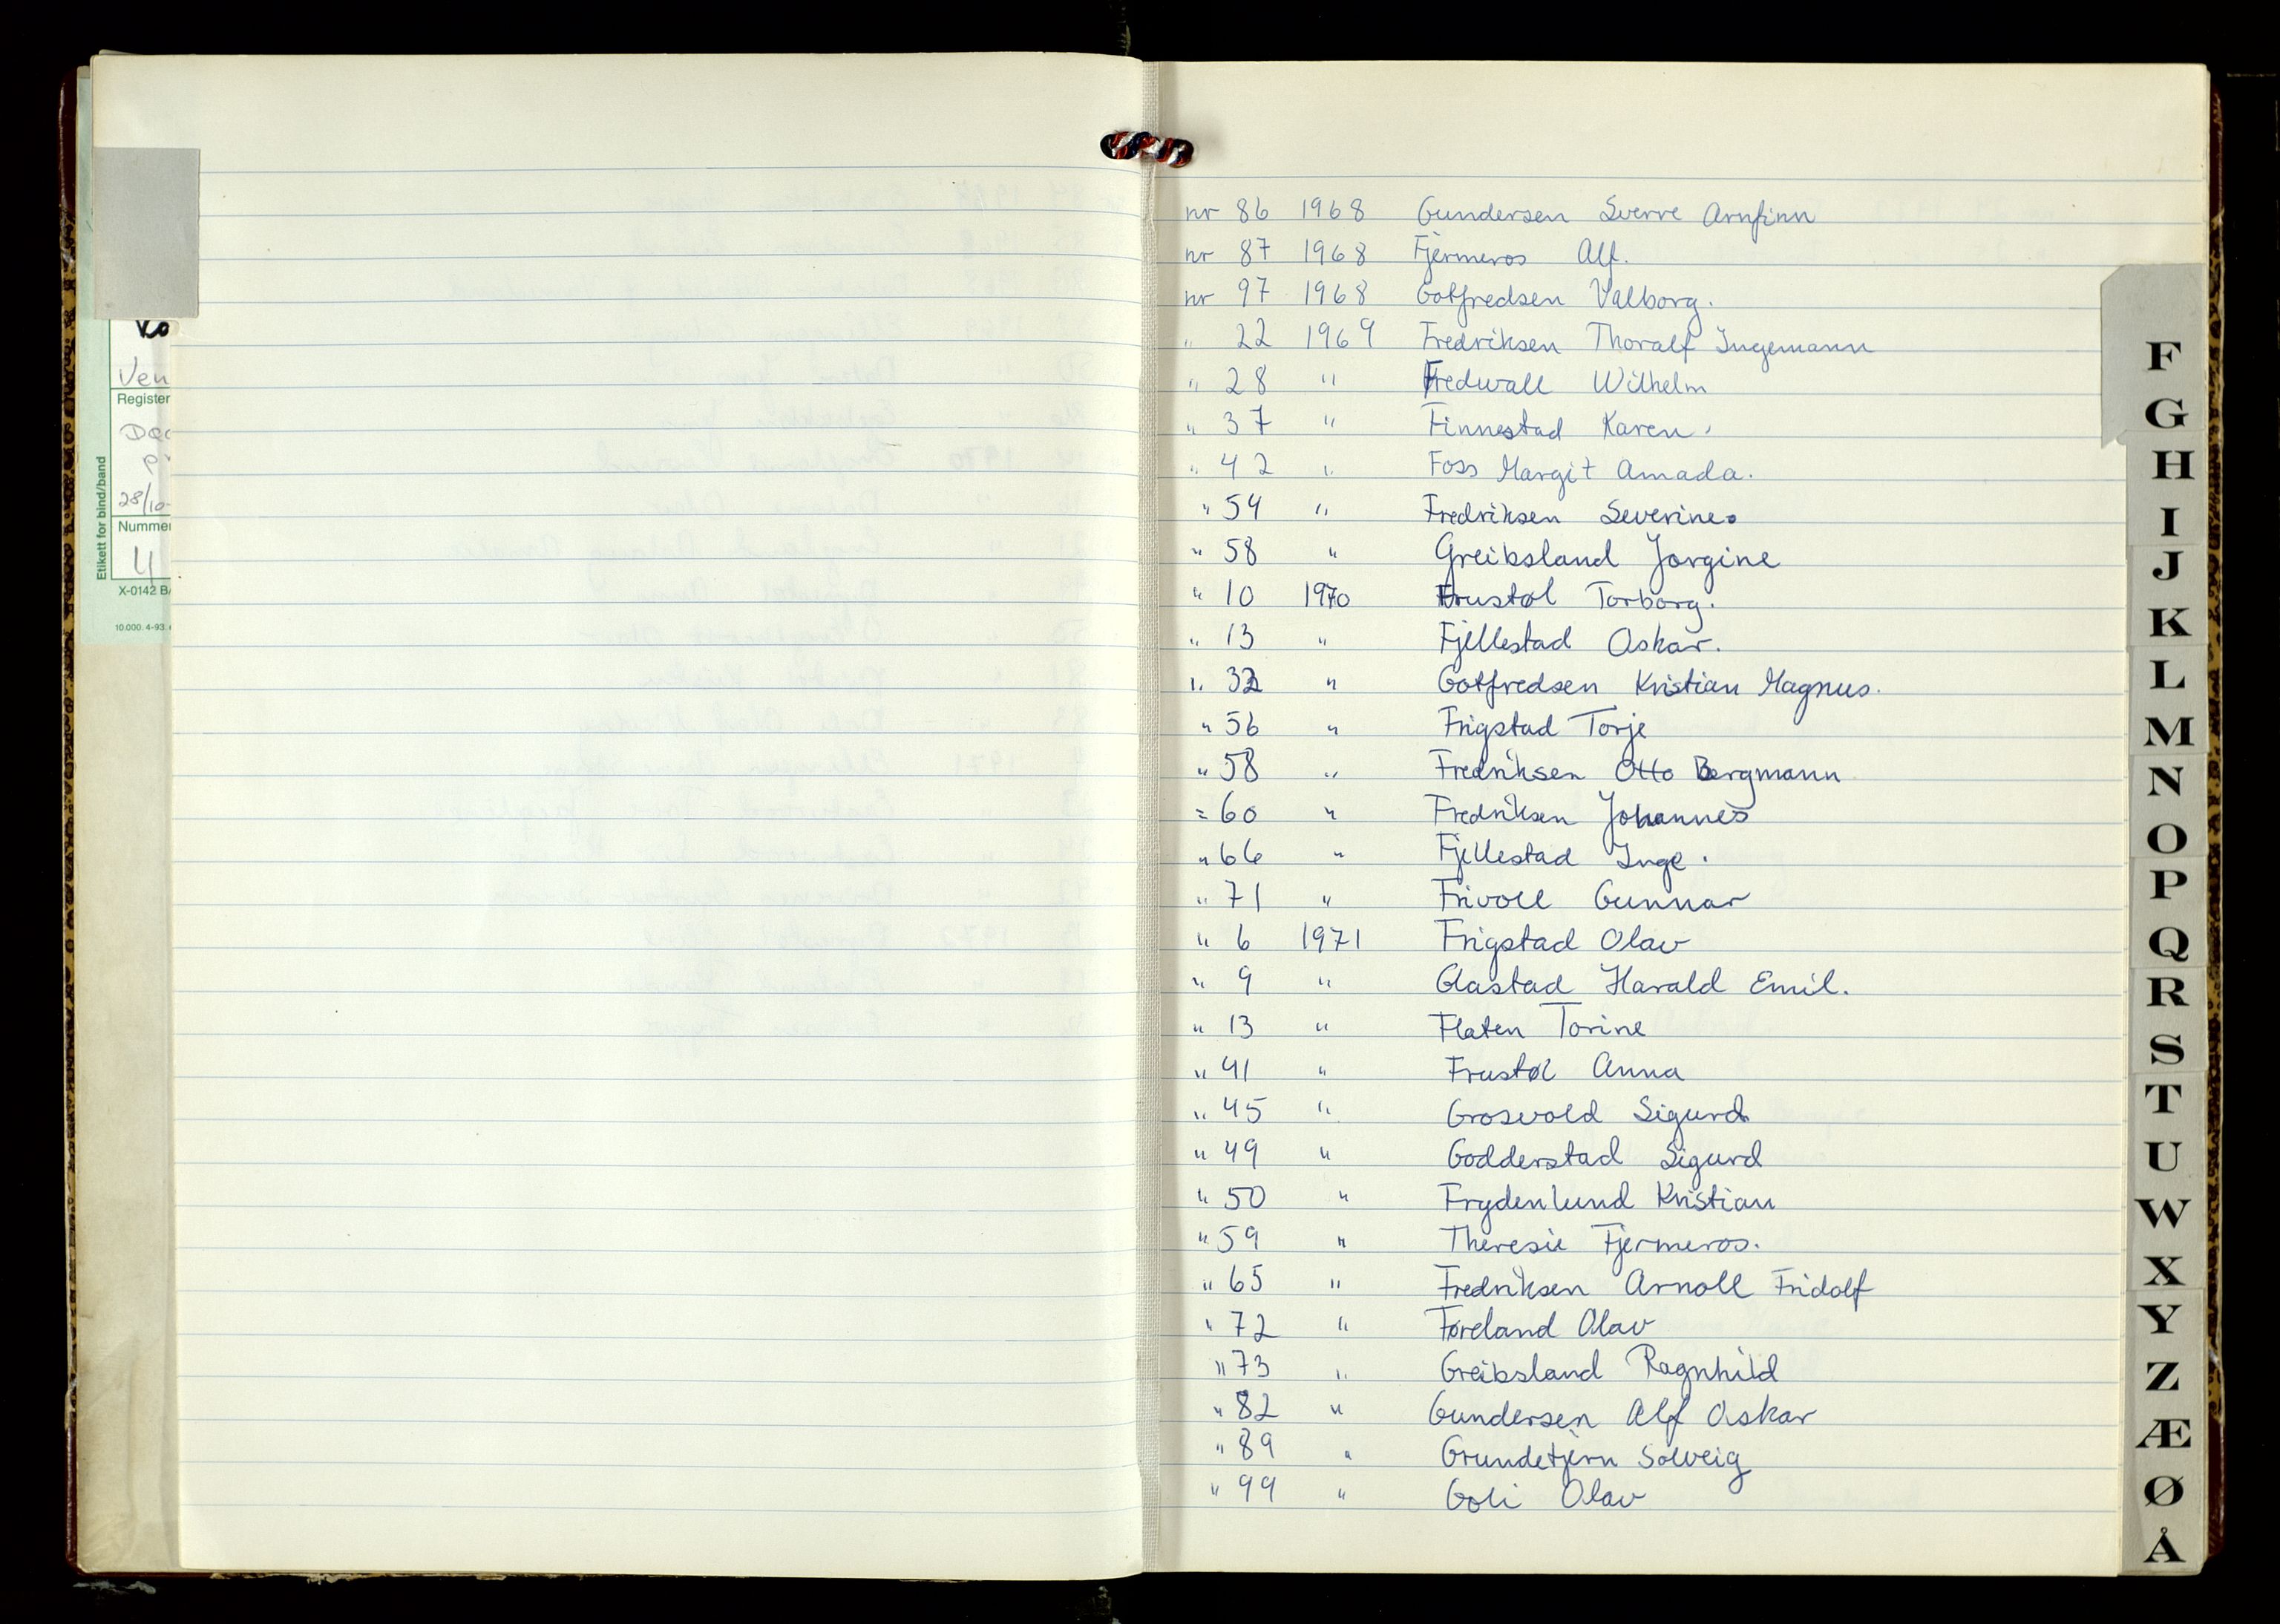 Ven
Register
Etikett for bind/band
28/10-
Nummer
4
X-0142 B
10.000. 4-93.
nr 86 1968 Gundersen Sverre Arnfinn
nr 87 1968 Fjermeros Alf.
nr 97 1968 Gotfredsen Valborg.
" 22 1969 Fredriksen Thoralf Ingemann
" 28 " Fredwall Wilhelm
" 37 " Finnestad Karen.
" 42 " Foss Margit Amada.
" 54 " Fredriksen Severine.
" 58 " Greibsland Jorgine
" 10 1970 Frustøl Torborg.
" 13 " Fjellestad Oskar.
" 32 " Gotfredsen Kristian Magnus.
" 56 " Frigstad Torje
" 58 " Fredriksen Otto Bergmann
= 60 " Fredriksen Johannes
" 66 " Fjellestad Inge.
" 71 " Frivoll Gunnar
" 6 1971 Frigstad Olav
" 9 " Glastad Harald Emil.
" 13 " Flaten Torine
" 41 " Frustøl Anna
" 45 " Grosvold Sigurd
" 49 " Godderstad Sigurd
" 50 " Frydenlund Kristian
" 59 " Theresie Fjermeros.
" 65 " Fredriksen Arnoll Fridolf
" 72 " Føreland Olav
" 73 " Greibsland Ragnhild
" 82 " Gundersen Alf Oskar
" 89 " Grundetjern Solveig
" 99 " Goli Olav
F
G
H
I
J
K
L
M
N
O
P
Q
R
S
T
U
W
X
Y
Z
Æ
Ø
Å